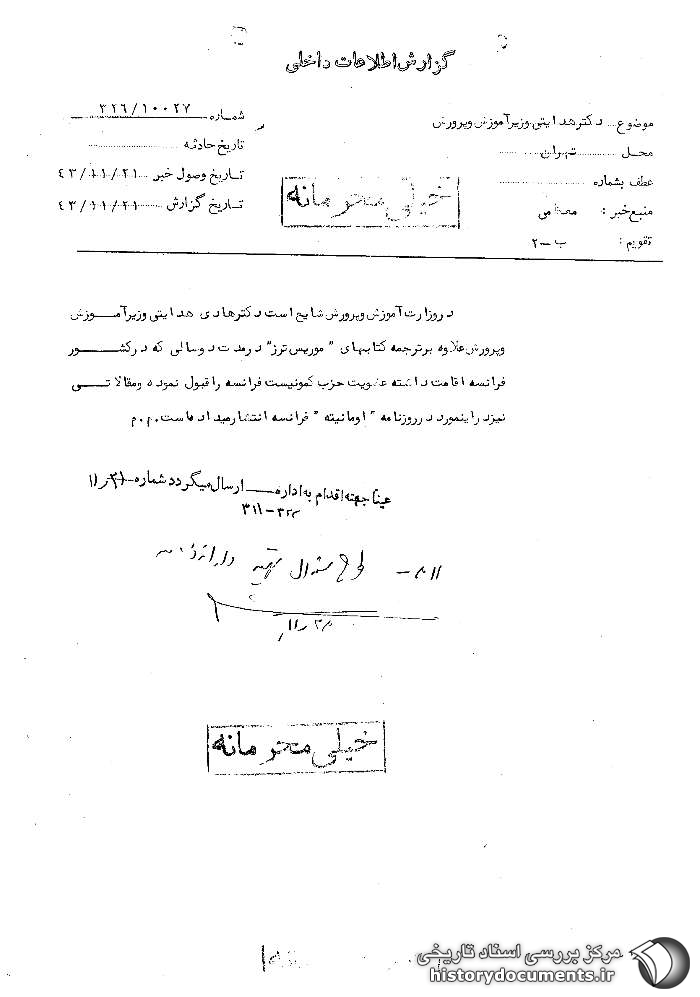 گزارش اطلاعات داخلی
موضوع ... دکتر هدایتی وزیر آموزش و پرورش
شماره ۳۲۶/۱۰۰۲۷
محل ........ تهران ........
تاریخ حادثه ........
عطف بشماره ........
تاریخ وصول خبر ... ۴۳/۱۱/۲۱
منبع خبر :
تاریخ گزارش ...... ۴۳/۱۱/۲۱
تقویم : ب-۲
خیلی محرمانه
در وزارت آموزش و پرورش شایع است دکتر هادی هدایتی وزیر آمـــوزش
و پرورش علاوه بر ترجمه کتابهای " موریس ترز" در مدت دو سالی که در کشـــور
فرانسه اقامت داشته عضویت حزب کمونیست فرانسه را قبول نموده و مقالاتـــی
نیز در اینمورد در روزنامه " اومانیته " فرانسه انتشار میداد هاست.م.م
عینا جهته اقدام به اداره ـــ ارسال میگردد شماره
۳۱۱-
خیلی محرمانه
مرکز بررسی اسناد تاریخی
historydocuments.ir